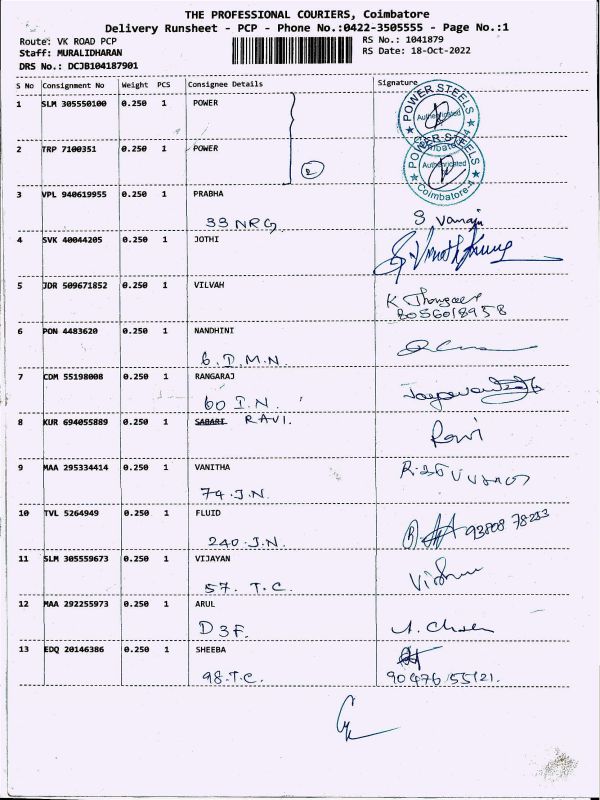 THE PROFESSIONAL COURIERS, Coimbatore
Delivery Runsheet - PCP - Phone No.:0422-3505555 - Page No.:1
Route: VK ROAD PCP RS No.: 1041879
Staff: MURALIDHARAN RS Date: 18-Oct-2022
DRS No.: DCJB104187901
S No Consignment No Weight PCS Consignee Details Signature
1 SLM 305550100 0.250 1 POWER
POWER STEELS Authenticated Coimbatore-4
2 TRP 7100351 0.250 1 POWER
2
POWER STEELS Authenticated Coimbatore-4
3 VPL 940619955 0.250 1 PRABHA
33 NRG
4 SVK 40044205 0.250 1 JOTHI
5 JDR 509671852 0.250 1 VILVAH
8056018958
6 PON 4483620 0.250 1 NANDHINI
6. D.M.N
7 CDM 55198008 0.250 1 RANGARAJ
60 I.N.
8 KUR 694055889 0.250 1 SABARI RAVI. Ravi
9 MAA 295334414 0.250 1 VANITHA
74.J.N.
10 TVL 5264949 0.250 1 FLUID
240.J.N. 93808 78233
11 SLM 305559673 0.250 1 VIJAYAN
57. T.C.
12 MAA 292255973 0.250 1 ARUL
D 3F.
13 EDQ 20146386 0.250 1 SHEEBA
98.T.C. 90476 55121.